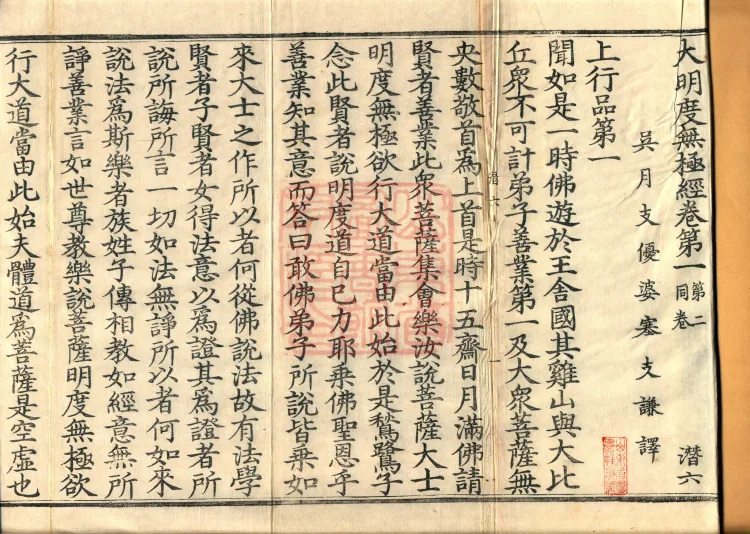 大明度無極經卷第一 第二同卷 潛六
吳月支優婆塞支謙譯
上行品第一
聞如是一時佛遊於王舍國其雞山與大比
丘衆不可計弟子善業第一及大衆菩薩無
央數敬首爲上首是時十五齋日月滿佛請
賢者善業此衆菩薩集會樂汝說菩薩大士
明度無極欲行大道當由此始於是鶖鷺子
念此賢者說明度道自己力耶乘佛聖恩乎
善業知其意而答曰敢佛弟子所說皆乘如
來大士之作所以者何從佛說法故有法學
賢者子賢者女得法意以爲證其爲證者所
說所誨所言一切如法無諍所以者何如來
說法爲斯樂者族姓子傳相教如經意無所
諍善業言如世尊教樂說菩薩明度無極欲
行大道當由此始夫體道爲菩薩是空虛也
潛六 一